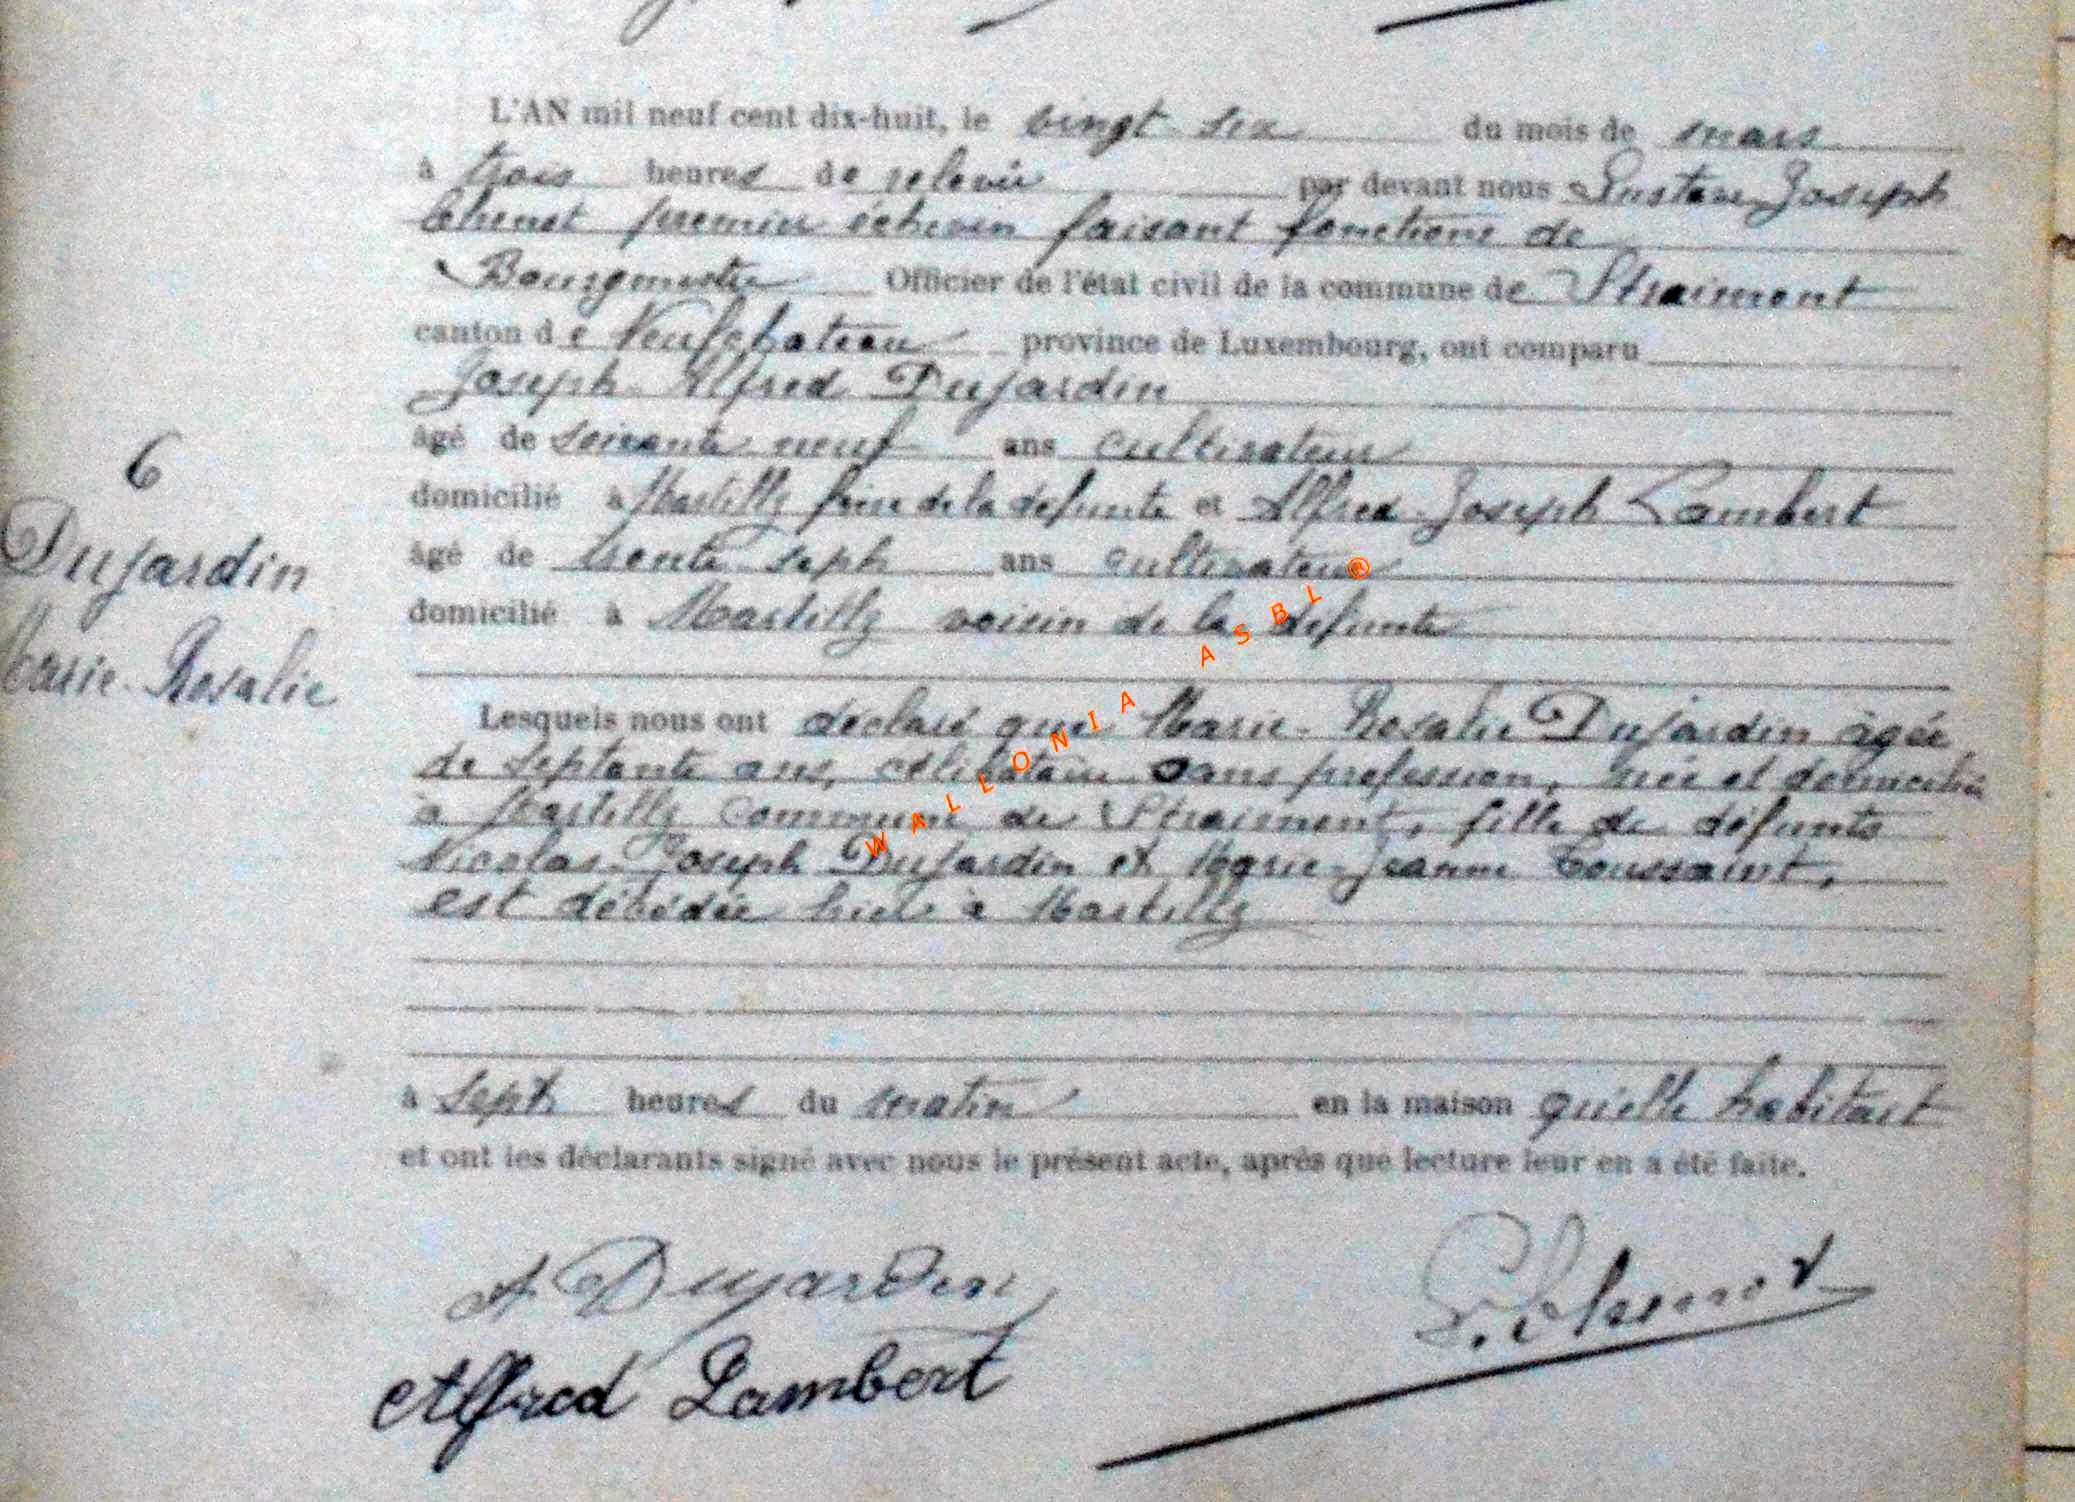 L'AN mil neuf cent dix-huit, le vingt six du mois de mars
à trois heures de relevée par devant nous Gustave Joseph
Chenot premier échevin faisant fonctions de
Bourgmestre Officier de l'état civil de la commune de Straimont
canton de Neufchateau province de Luxembourg, ont comparu
Joseph Alfred Dujardin
âgé de soixante neuf ans cultivateur
6
domicilié à Martilly frère de la défunte et Alfred Joseph Lambert
Dujardin
âgé de trente sept ans cultivateur
domicilié à Martilly voisin de la défunte
Marie-Rosalie
Lesquels nous ont déclaré que Marie-Rosalie Dujardin âgée
de septante ans, célibataire sans profession, née et domiciliée
à Martilly commune de Straimont, fille de défunts
Nicolas-Joseph Dujardin et Marie-Jeanne Toussaint,
est décédée hier à Martilly
à sept heures du matin en la maison qu'elle habitait
et ont les déclarants signé avec nous le présent acte, après que lecture leur en a été faite.
A Dujardin
G. Chenot
Alfred Lambert
WALLONIA ASBL ®